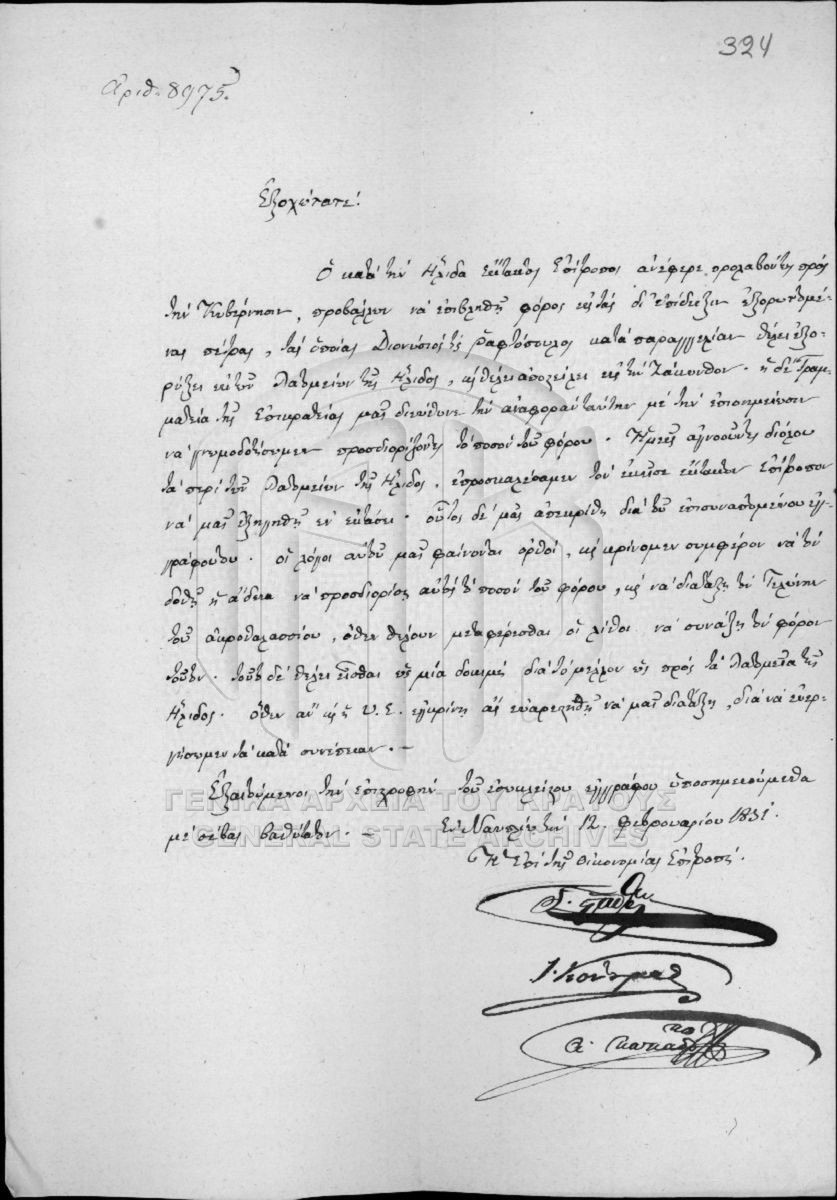 324
Ἀριθ. 8975.
Ἐξοχώτατε!
Ὁ κατὰ τὴν Ἤλιδα Ἔκτακτος Ἐπίτροπος ἀνέφερε προλαβόντως πρὸς
τὴν Κυβέρνησιν, προβάλλων νὰ ἐπιβληθῇ φόρος εἰς τὰς δι' ἐπίδειξιν ἐξορυττομέ-
νας πέτρας, τὰς ὁποίας Διονύσιός τις Ῥαφτόπουλος κατὰ παραγγελίαν θέλει ἐξο-
ρύξει ἐκ τῶν Λατομείων τῆς Ἤλιδος, καὶ θέλει ἀποστείλει εἰς τὴν Ζάκυνθον. ἡ δὲ Γραμ-
ματεία τῆς Ἐπικρατείας μᾶς διεύθυνε τὴν ἀναφορὰν ταύτην μὲ τὴν ἐπισημείωσιν
νὰ γνωμοδοτήσωμεν προσδιορίζοντες τὸ ποσὸν τοῦ φόρου. Ἡμεῖς ἀγνοοῦντες διόλου
τὰ περὶ τῶν Λατομείων τῆς Ἤλιδος, ἐπροσκαλέσαμεν τὸν ἐκεῖσε ἔκτακτον Ἐπίτροπον
νὰ μᾶς ἐξηγηθῇ ἐν ἐκτάσει. οὗτος δὲ μᾶς ἀπεκρίθη διὰ τοῦ ἐπισυναπτομένου ἐγ-
γράφου του. οἱ λόγοι αὐτοῦ μᾶς φαίνονται ὀρθοί, καὶ κρίνομεν συμφέρον νὰ τῷ
δοθῇ ἡ ἄδεια νὰ προσδιορίσῃ αὐτὸς τὸ ποσὸν τοῦ φόρου, καὶ νὰ διατάξῃ τὸν Τελώνην
τοῦ ἀκροθαλασσίου, ὅθεν θέλουν μεταφέρεσθαι οἱ λίθοι νὰ συνάξῃ τὸν φόρον
τοῦτον. τοῦτο δὲ θέλει εἶσθαι ὡς μία δοκιμὴ διὰ τὸ μέλλον ὡς πρὸς τὰ Λατομεῖα τῆς
Ἤλιδος. ὅθεν ἂν καὶ ἡ Υ. Ε. ἐγκρίνῃ ἂς εὐαρεστηθῇ νὰ μᾶς διατάξῃ, διὰ νὰ ἐνερ-
γήσωμεν τὰ κατὰ συνέπειαν. –
Ἐξαιτούμενοι τὴν ἐπιστροφὴν τοῦ ἐσωκλείστου ἐγγράφου ὑποσημειούμεθα
μὲ σέβας βαθύτατον. – Ἐν Ναυπλίῳ τὴν 12 Φεβρουαρίου 1831.
Ἡ Ἐπὶ τῆς Οἰκονομίας Ἐπιτροπή.
Ι. Κοντουμᾶς
Α.
ΓΕΝΙΚΑ ΑΡΧΕΙΑ ΤΟΥ ΚΡΑΤΟΥΣ
GENERAL STATE ARCHIVES